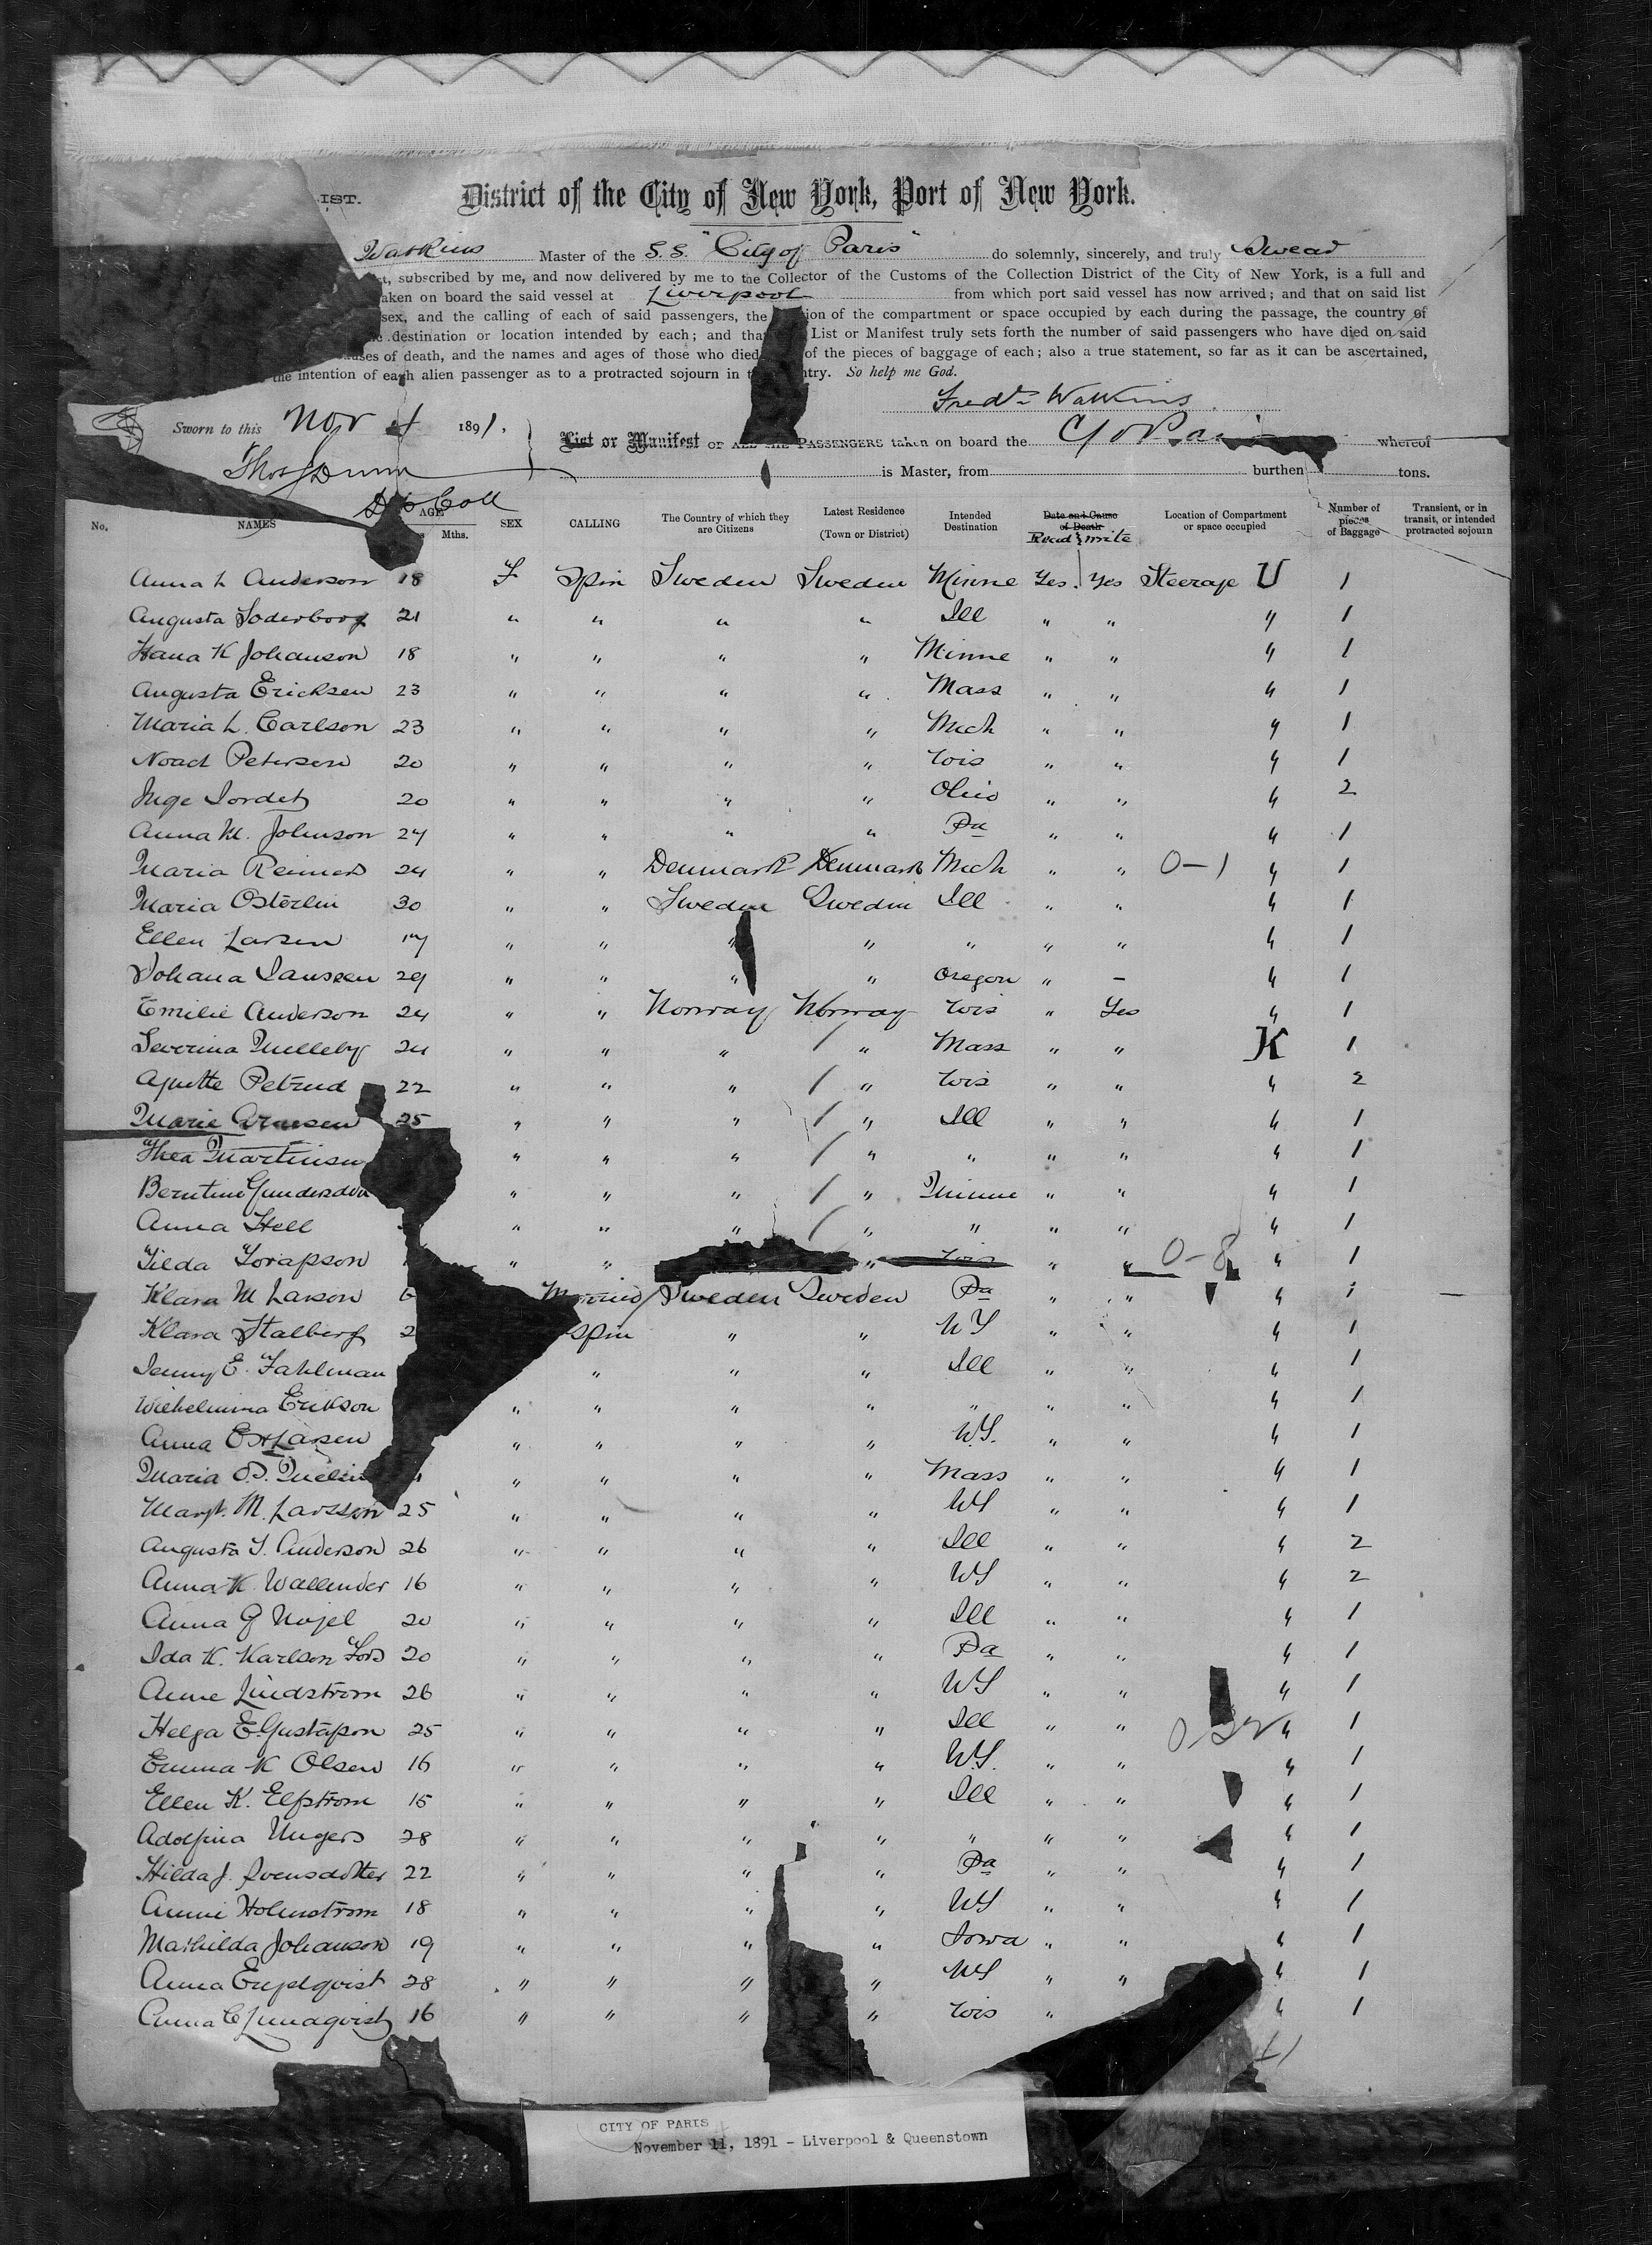 IST.
District of the City of New York, Port of New York.
Watkins Master of the S.S. "City of Paris" do solemnly, sincerely, and truly Swear
subscribed by me, and now delivered by me to the Collector of the Customs of the Collection District of the City of New York, is a full and
taken on board the said vessel at Liverpool from which port said vessel has now arrived; and that on said list
sex, and the calling of each of said passengers, the of the compartment or space occupied by each during the passage, the country of
destination or location intended by each; and that List or Manifest truly sets forth the number of said passengers who have died on said
of death, and the names and ages of those who died of the pieces of baggage of each; also a true statement, so far as it can be ascertained,
the intention of each alien passenger as to a protracted sojourn in So help me God.
Fredk Watkins
Sworn to this Nov 1891,
List or Manifest OF ALL THE PASSENGERS taken on board the C of Paris whereof
Thos Dunn
is Master, from burthen tons.
Dp Coll
No. NAMES AGE Mths. SEX CALLING The Country of which they are Citizens Latest Residence (Town or District) Intended Destination Date and Cause of Death Read & write Location of Compartment or space occupied Number of pieces of Baggage Transient, or in transit, or intended protracted sojourn
Anna L Anderson 18 F Spin Sweden Sweden Minne Yes Yes Steerage U 1
Augusta Soderborg 21 " " " " Ill " " " 1
Hana K Johanson 18 " " " " Minne " " " 1
Augusta Ericksen 23 " " " " Mass " " " 1
Maria L. Carlson 23 " " " " Mich " " " 1
Peterson 20 " " " " Wis " " " 1
Inge 20 " " " " Ohio " " " 2
Anna M. Johnson 24 " " " " Pa " " " 1
Maria Reimers 24 " " Denmark Denmark Mich " " 0-1 " 1
Maria Osterlin 30 " " Sweden Sweden Ill " " " 1
Ellen Larsen 17 " " " " " " " " 1
Johana Janssen 29 " " " " Oregon " - " 1
Emilie Anderson 24 " " Norway Norway Wis " Yes " 1
Severina Melleby 24 " " " / " Mass " " K 1
Agnette Petrud 22 " " " / " Wis " " " 2
Marie Arnesen 25 " " " / " Ill " " " 1
Thea Martinsen " " " / " " " " " 1
Berntine Gundersden " " " / " Minne " " " 1
Anna Hell " " " / " " " " " 1
Tilda Torapson " " " Wis " " 0-8 " 1
Klara M Larson Married Sweden Sweden Pa " " " 1
Klara Stalberg 2 Spin " " NY " " " 1
Jenny E. Fahlman " " " Ill " " " 1
Wilhelmina Erikson " " " " " " " " 1
Anna E Larsen " " " " N.Y. " " " 1
Maria " " " " Mass " " " 1
Margt. M. Larsson 25 " " " " NY " " " 1
Augusta T. Anderson 26 " " " " Ill " " " 2
Anna K. Wallender 16 " " " " NY " " " 2
Anna G 20 " " " " Ill " " " 1
Ida K. Karlson Fors 20 " " " " Pa " " " 1
Anne Lindstrom 26 " " " " NY " " " 1
Helga E. Gustafson 25 " " " " Ill " " " 1
Emma K Olsen 16 " " " " N.Y. " " " 1
Ellen K. Elfstrom 15 " " " " Ill " " " 1
Adolfina Ungers 28 " " " " " " " " 1
Hilda J. Svensdotter 22 " " " " Pa " " " 1
Annie Holmstrom 18 " " " " NY " " " 1
Mathilda Johanson 19 " " " " Iowa " " " 1
Anna Engelqvist 28 " " " " NY " " " 1
Anna C Lundqvist 16 " " " " Wis " " 1
CITY OF PARIS
November 11, 1891 - Liverpool & Queenstown